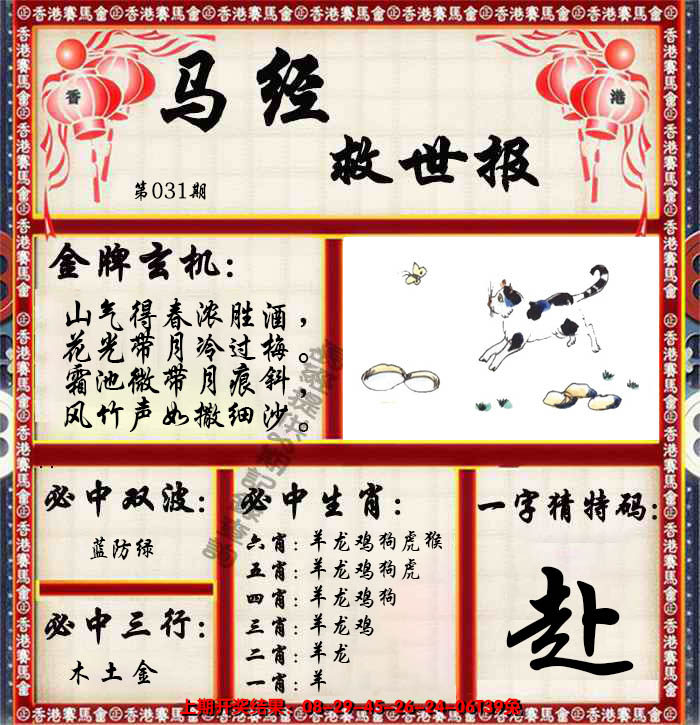 香港賽馬會
香
港
马经
救世报
第031期
金牌玄机：
山气得春浓胜酒，
花光带月冷过梅。
霜池微带月痕斜，
风竹声如撒细沙。
必中双波：
蓝防绿
必中三行：
木土金
必中生肖：
六肖：羊龙鸡狗虎猴
五肖：羊龙鸡狗虎
四肖：羊龙鸡狗
三肖：羊龙鸡
二肖：羊龙
一肖：羊
一字猜特码：
赴
上期开奖结果：08-29-45-26-24-06T39兔